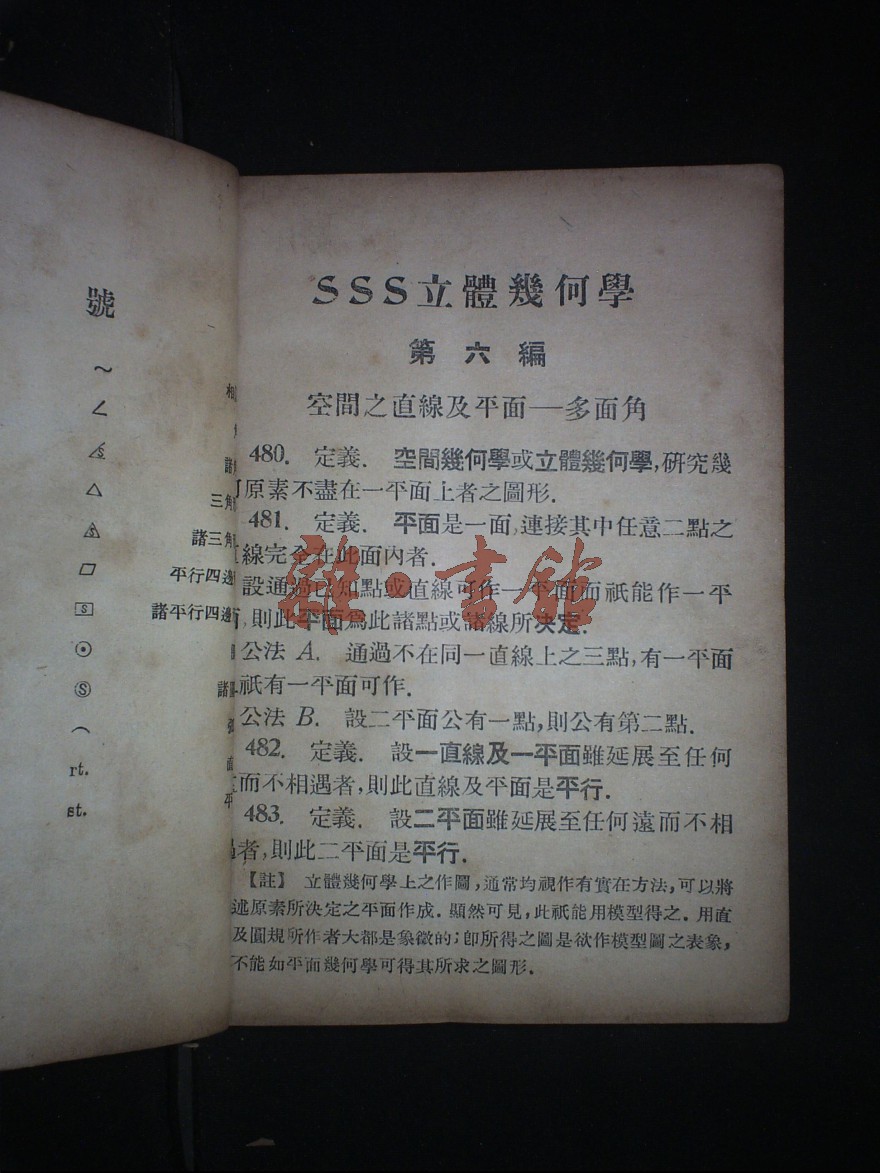 號
～
∠
△
三角
諸三角
▱
平行四邊
諸平行四邊
⊙
Ⓢ
⌒
rt.
st.
SSS立體幾何學
第六編
空間之直線及平面—多面角
480. 定義. 空間幾何學或立體幾何學,研究幾
原素不盡在一平面上者之圖形.
481. 定義. 平面是一面,連接其中任意二點之
線完全在此面內者.
設通過已知點或直線可作一平面而祇能作一平
,則此平面為此諸點或諸線所決定.
公法 A. 通過不在同一直線上之三點,有一平面
祇有一平面可作.
公法 B. 設二平面公有一點,則公有第二點.
482. 定義. 設一直線及一平面雖延展至任何
而不相遇者,則此直線及平面是平行.
483. 定義. 設二平面雖延展至任何遠而不相
者,則此二平面是平行.
【註】 立體幾何學上之作圖,通常均視作有實在方法,可以將
述原素所決定之平面作成. 顯然可見,此祇能用模型得之. 用直
及圓規所作者大都是象徵的;卽所得之圖是欲作模型圖之表象,
不能如平面幾何學可得其所求之圖形.
雜·書館